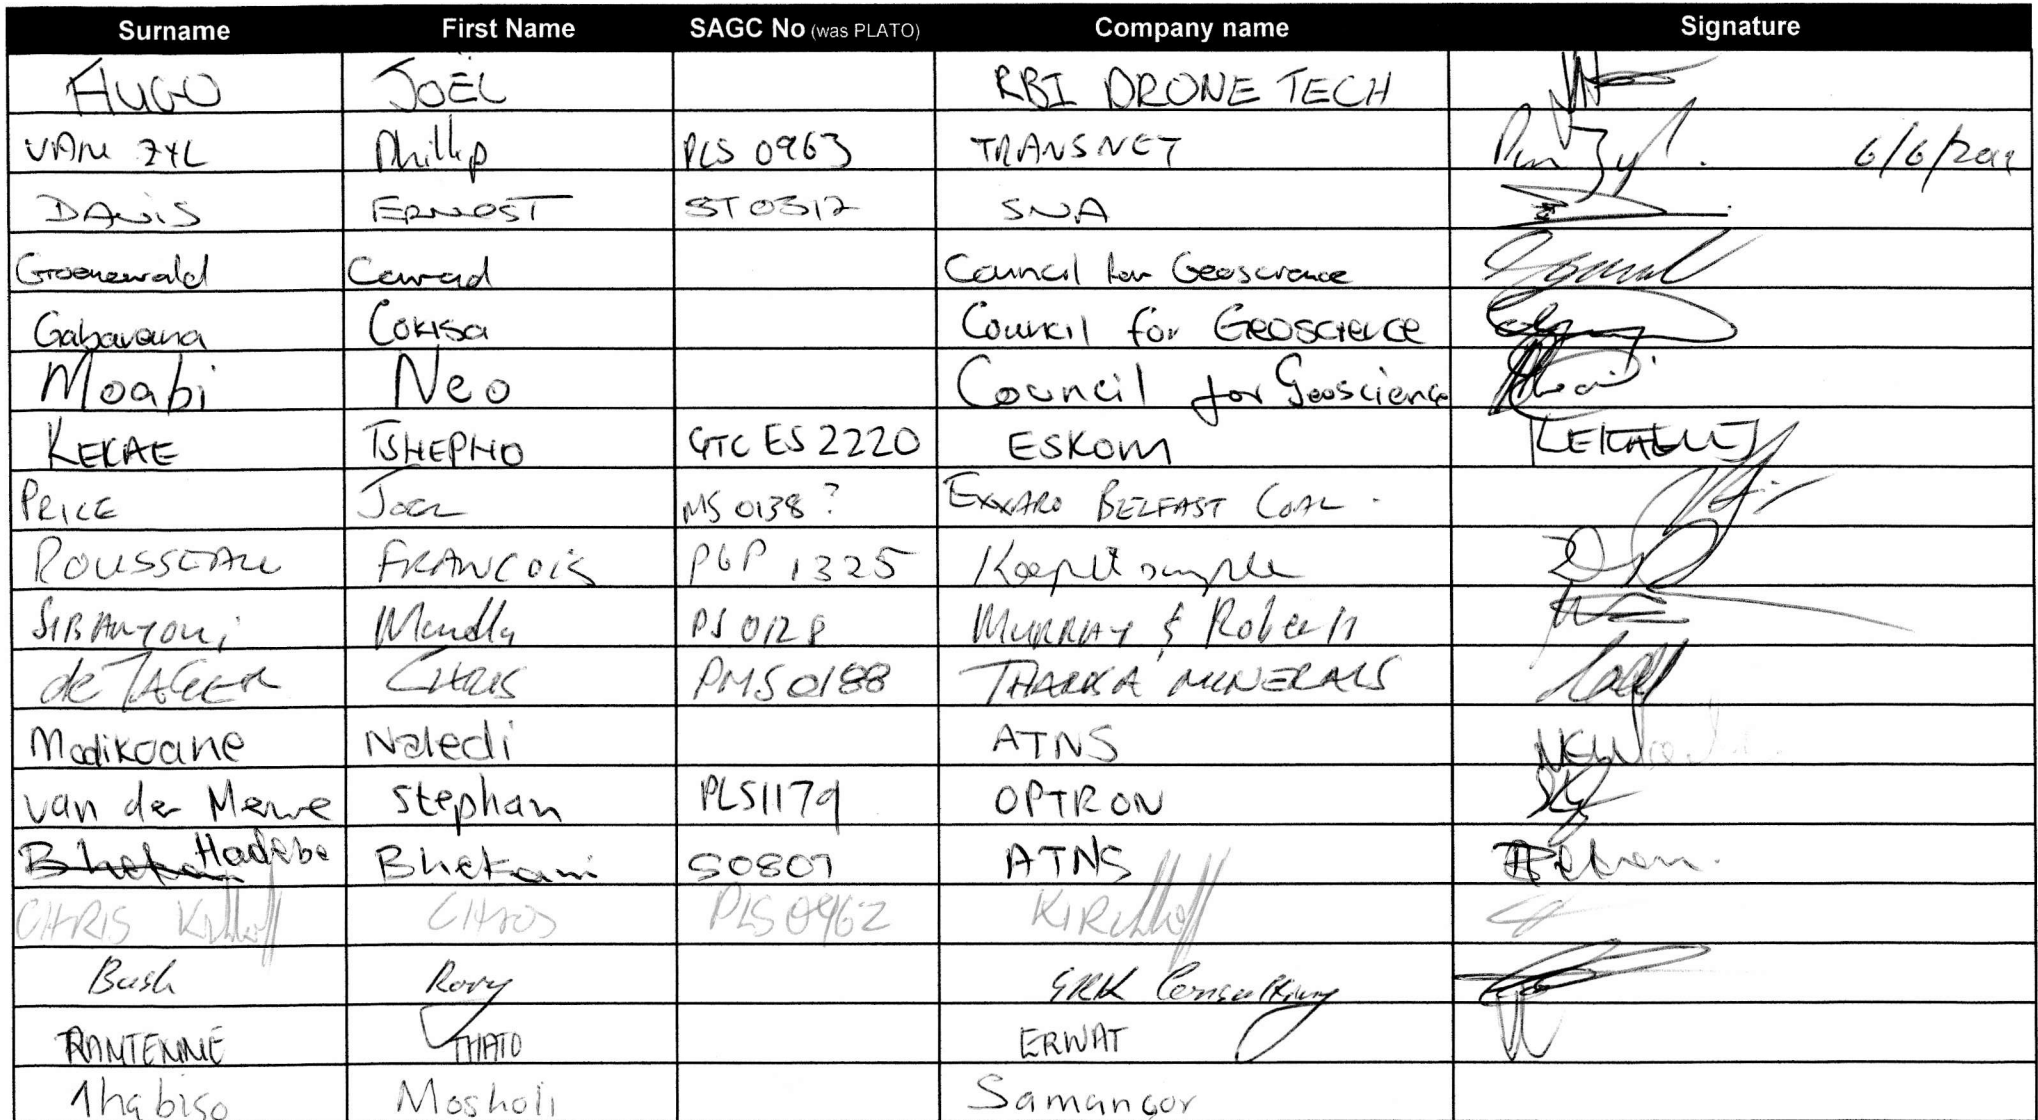 Surname First Name SAGC No (was PLATO) Company name Signature
HUGO JOËL RBI DRONE TECH
VAN ZYL Phillip PLS 0963 TRANSNET 6/6/2019
DAVIS ERNEST ST0317 SNA
Groenewald Conrad Council for Geoscience
Gabavana Cokisa Council for Geoscience
Moabi Neo Council for Geoscience
KEKAE TSHEPHO GTC ES 2220 ESKOM
PRICE Joel MS 0138 ? EXXARO BELFAST COAL
ROUSSEAU FRANCOIS PGP 1325
SIBANYONI Mandla PS 0128 MURRAY & Roberts
de JAGER CHRIS PMS0188 THARISA MINERALS
Modikoane Naledi ATNS
van der Merwe stephan PLS1179 OPTRON
Hadebe Bhekani S0807 ATNS
CHRIS Kirchhoff PLS0962 KIRchhoff
Bush Rory SRK Consulting
RANTENNE THATO ERWAT
Thabiso Mosholi Samancor